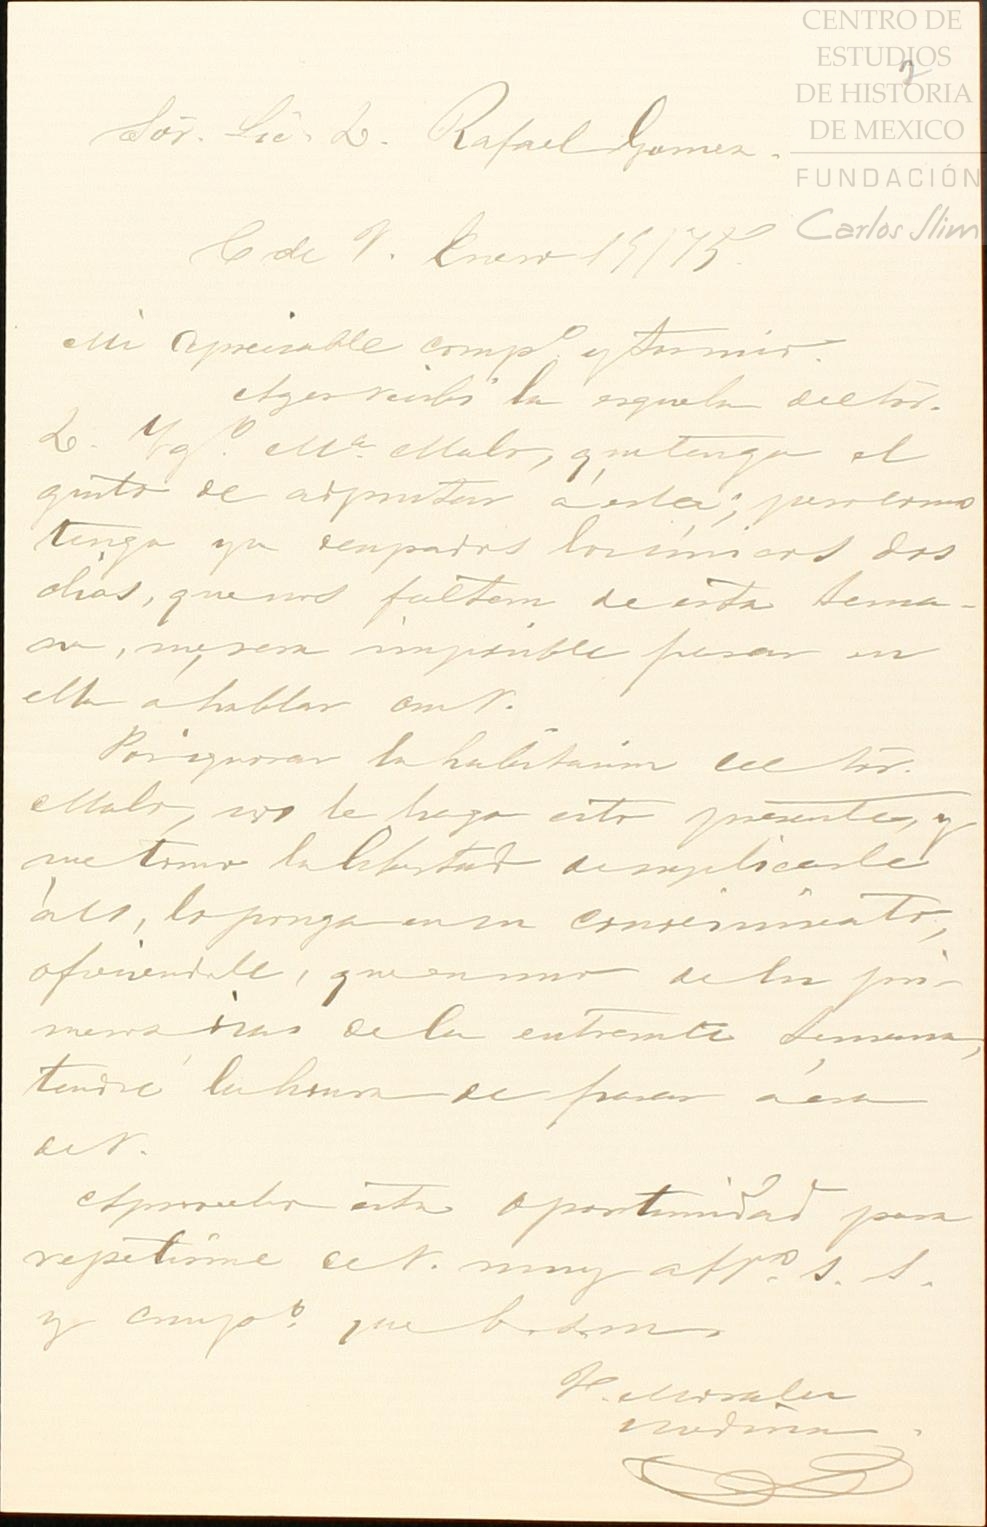 CENTRO DE
ESTUDIOS
DE HISTORIA
DE MEXICO
FUNDACIÓN
Carlos Slim
2
Sór. Lic. D. Rafael Gomez.
C de V. Enero 19/75.
Mi apreciable compº. y
Ayer recibí la esquela del Sór.
D. Ygº. Mª. Malo, que tengo el
gusto de adjuntar á esta; pero como
tengo ya ocupados los únicos dos
dias, que nos faltan de esta sema-
na, me sera imposible pasar en
ella á hablar con V.
Por ignorar la habitacion del Sór.
Malo, no le hago esto presente, y
me tomo la libertad de suplicarle
á Ud, lo ponga en su conocimiento,
ofreciendole, que en uno de los pri-
meros dias de la entrante semana,
tendré la honra de pasar á esa
de V.
Aprovecho esta oportunidad para
repetirme de V. muy affmº. S. S.
y compº. que b. s. m.
Morales
Medina